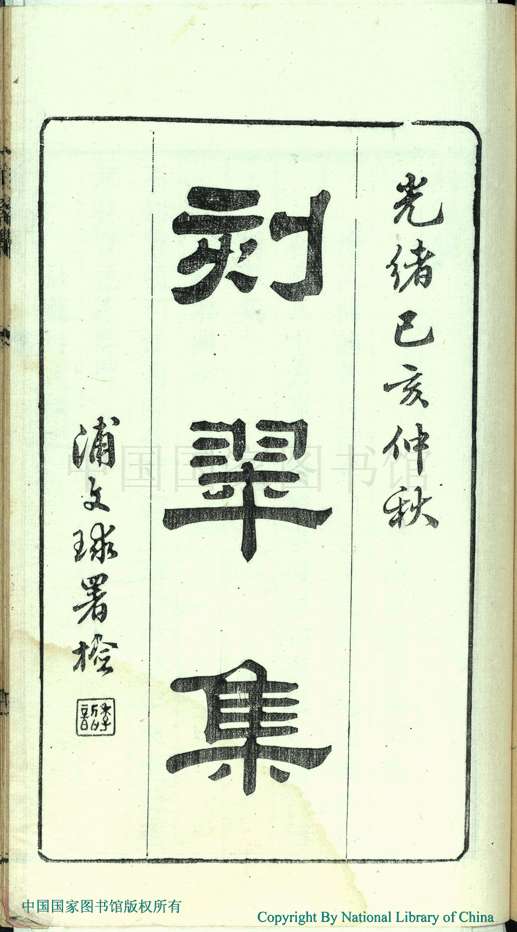 光緒己亥仲秋
刻翠集
浦文球署檢
中国国家图书馆
中国国家图书馆版权所有
Copyright By National Library of China